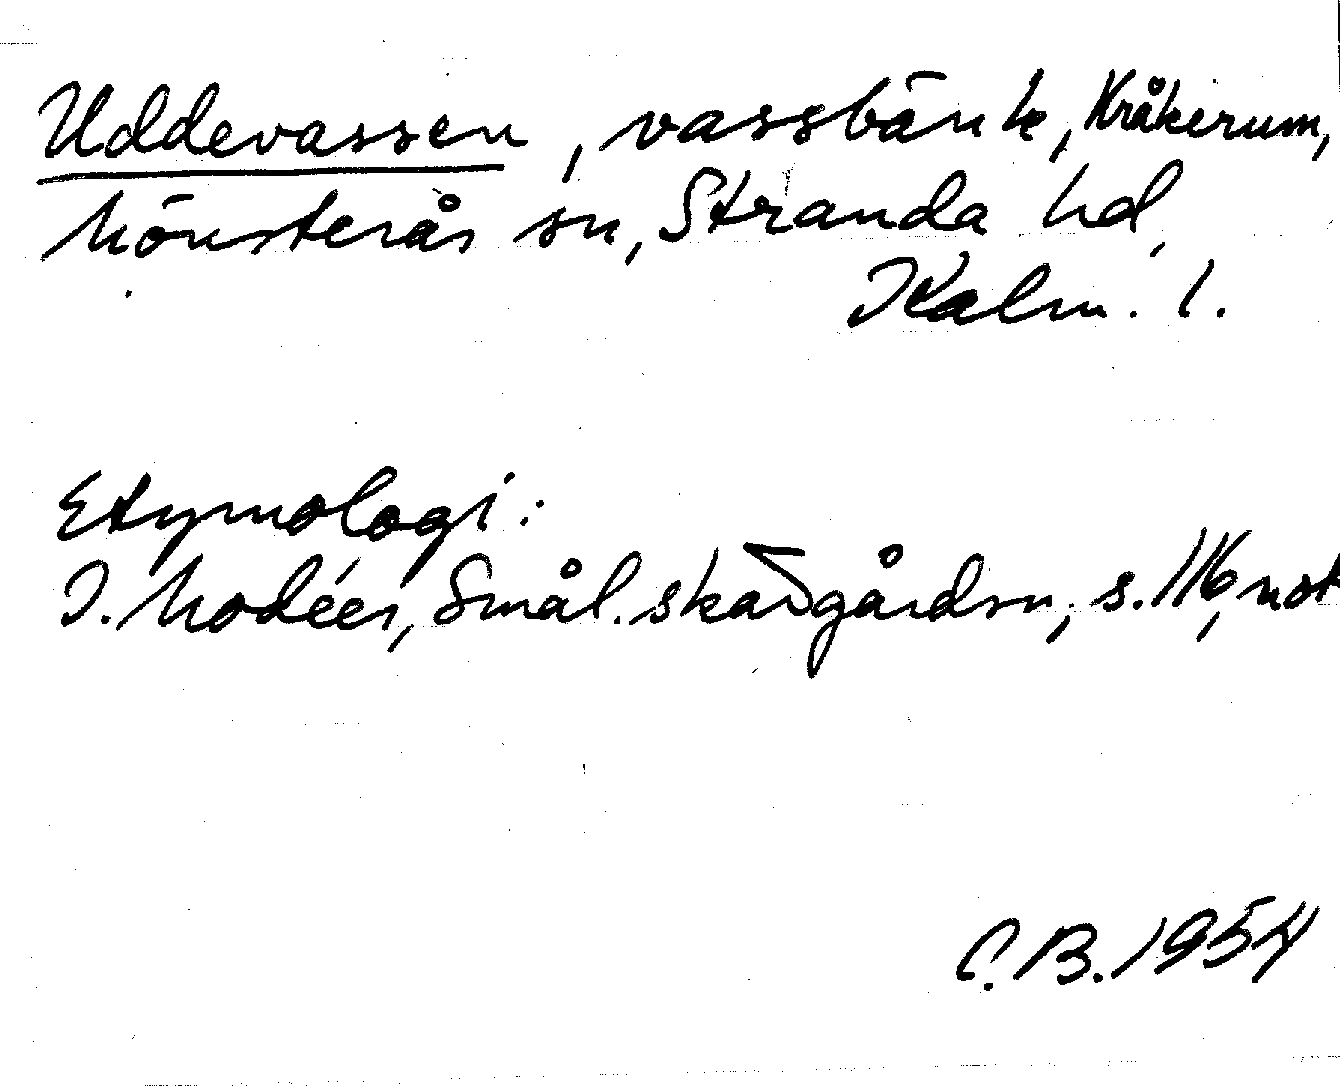 Uddevassen, vassbänk, Kråkerum,
Mönsterås sn, Stranda hd,
Kalm. l.
Etymologi:
I. Modéer, Smål. skärgårdsn, s. 116, not
C.B. 1954